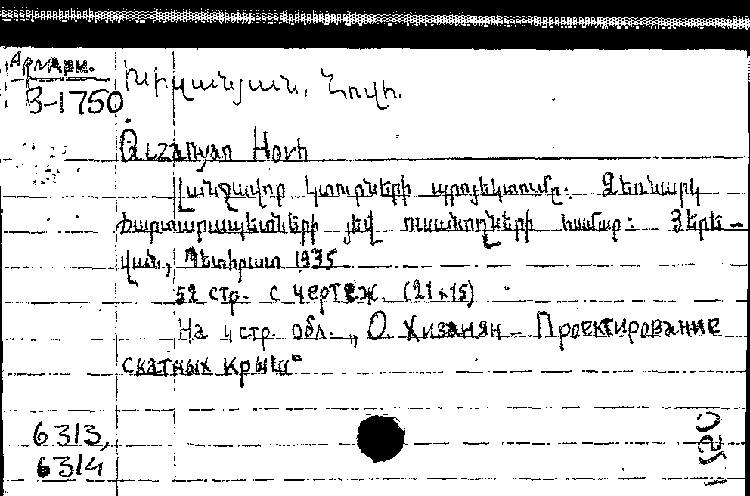 Армарм.
3-1750
Խիզանյան, Հովհ.
Qizanyan Hovh
Լանջավոր կտուրների պրոյեկտումը: Ձեռնարկ
ճարտարապետների յեվ ուսանողների համար: Յերե-
վան, Պետհրատ 1935
52 стр. с чертеж. (21x15)
На 4 стр. обл. „О. Хизанян - Проектирование
скатных крыш"
6313,
6314